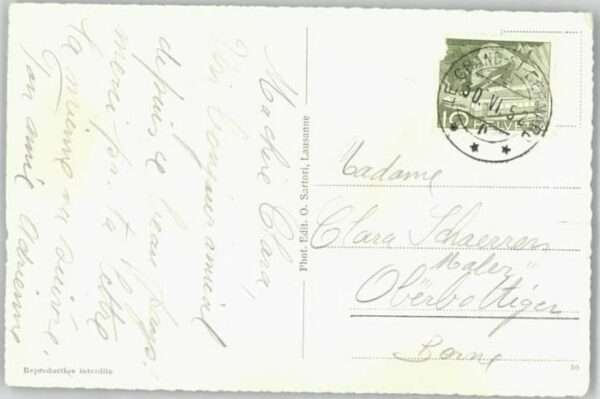 Ma chère Clara,
Un bonjour amical
depuis ce beau pays.
merci pr. ta lettre
la mienne va suivre.
Ton amie Adrienne
Phot. Edit. O. Sartori, Lausanne
Reproduction interdite
LE GRAND-
30.VI.52
10 HELVETIA
Madame
Clara Schaerren
"Maler"
Oberbottigen
Berne